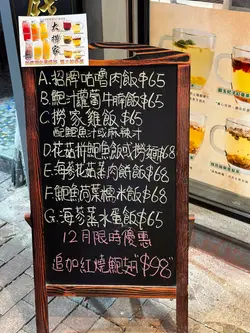 大搾家
A.招牌咕嚕肉飯$65
B.鮑汁蘿蔔牛腩飯$65
C.撈家雞飯$65
配鮑魚汁或麻辣汁
D.花菇拼鮑魚飯或撈麵$68
E.海參花菇素肉餅飯$68
F.鮑魚荷葉糯米飯$68
G.海參蒸水蛋飯$65
12月限時優惠
追加紅燒鮑翅"$98"